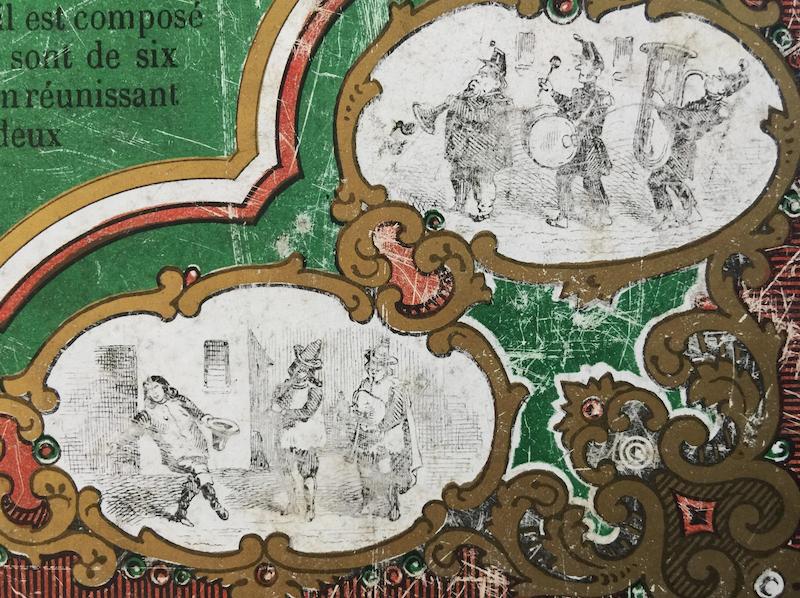 il est composé
sont de six
n réunissant
deux